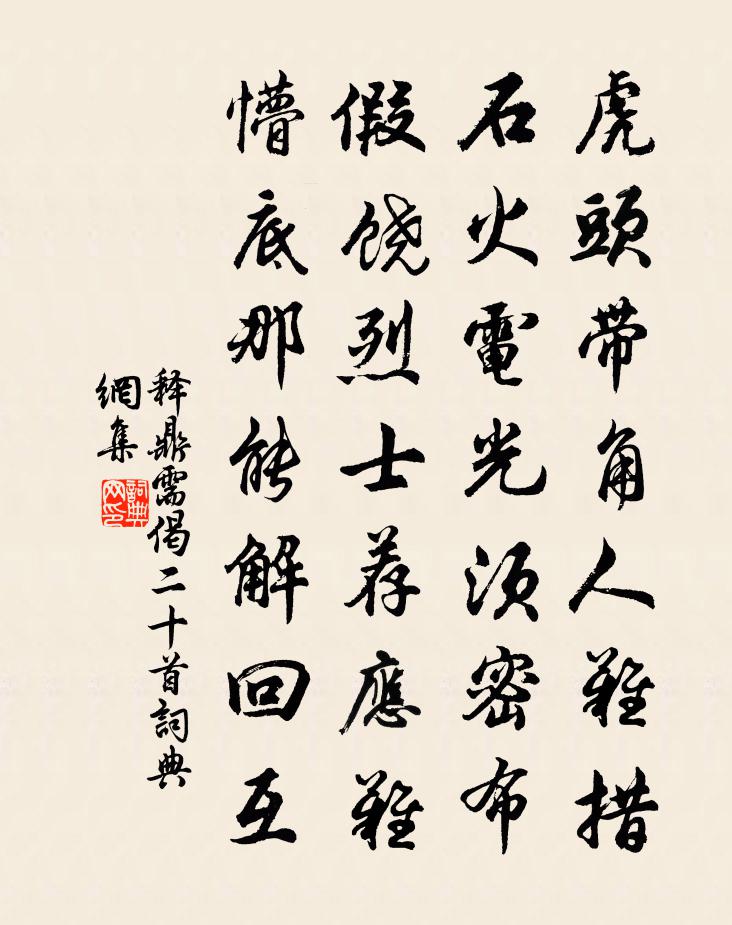 虎頭带角人難措
石火電光須密布
假饶烈士荐應難
懵底那能解回互
释鼎需偈二十首詞典
網集
詞典
网印